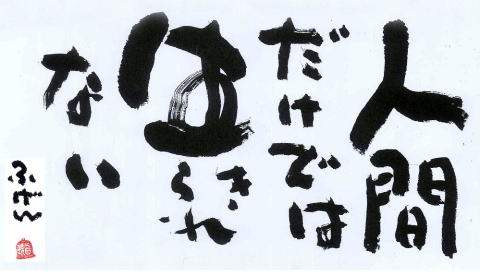 人間
だけでは
生きられ
ない